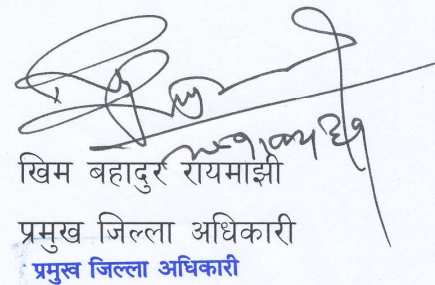 खिम बहादुर रायमाझी
प्रमुख जिल्ला अधिकारी
प्रमुख जिल्ला अधिकारी